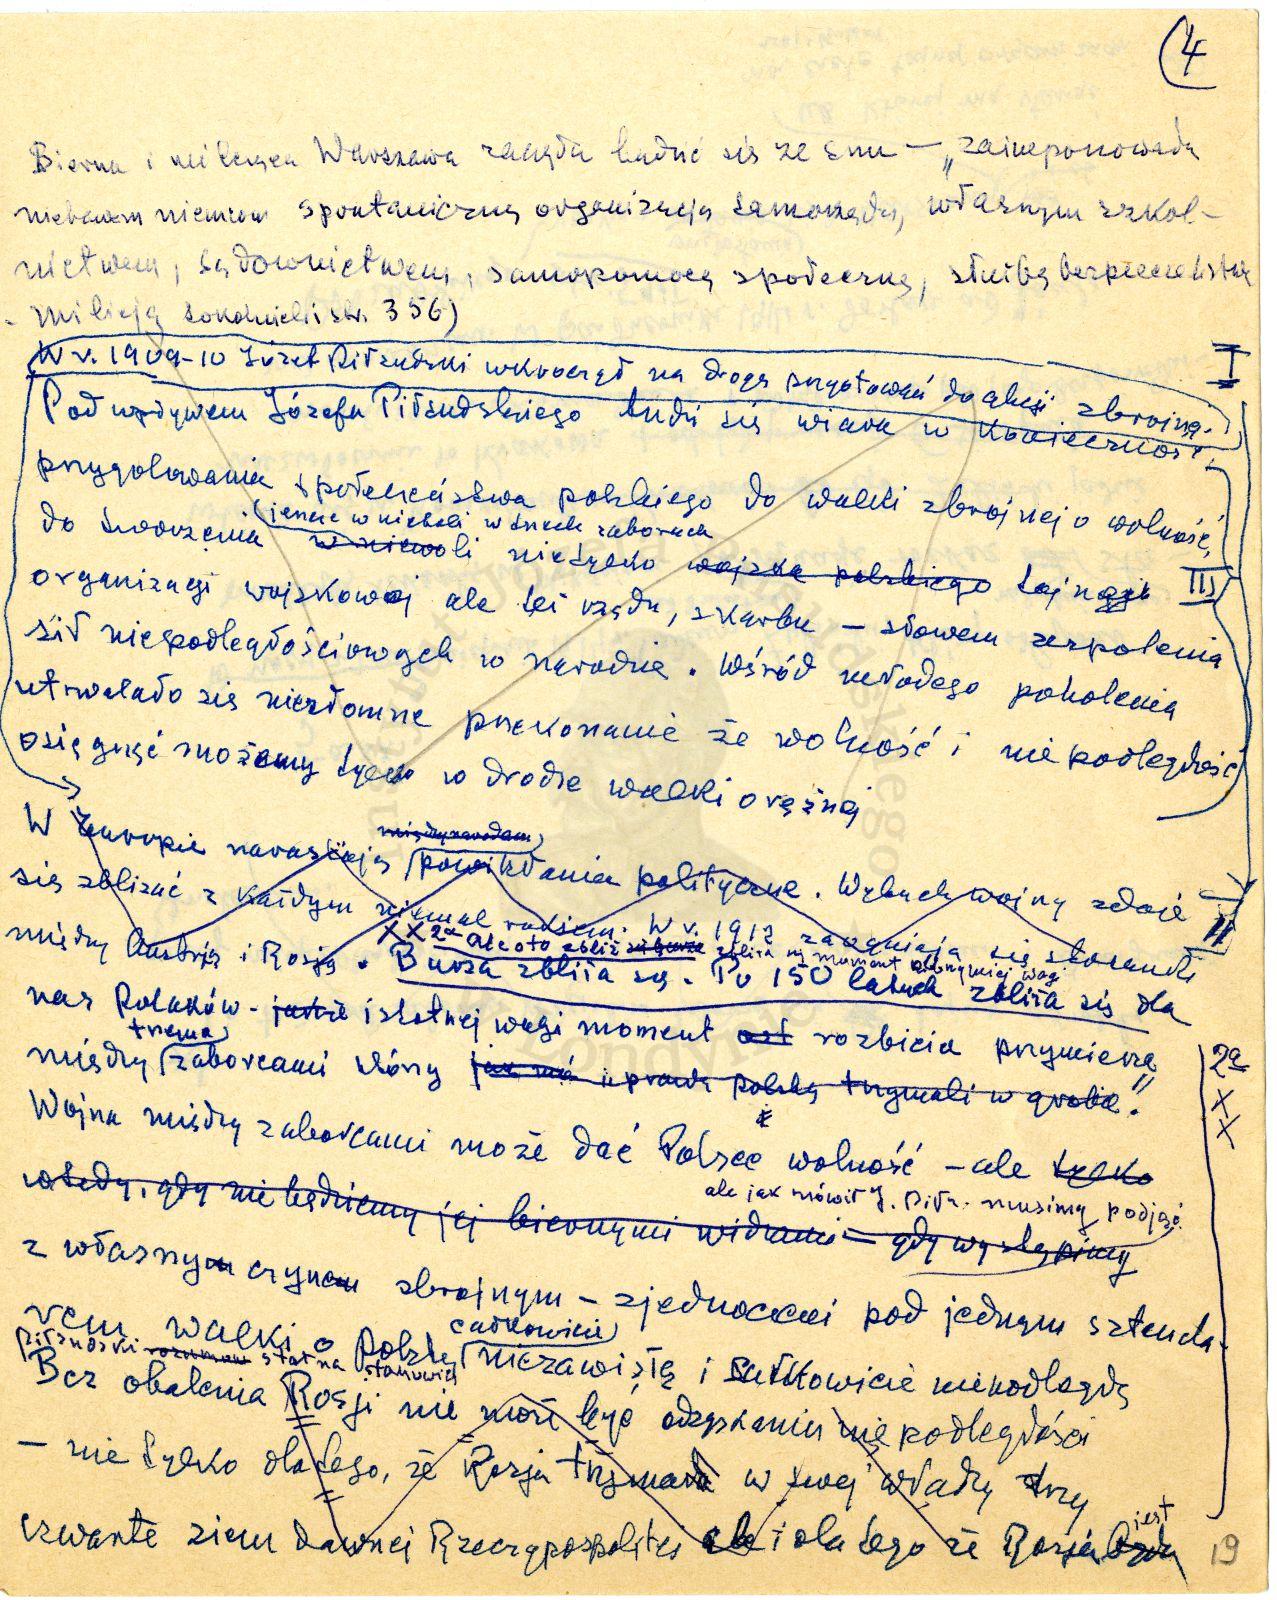 (4
Bierna i milcząca Warszawa zaczęła budzić się ze snu — „zaimponowała
niebawem niemcom spontaniczną organizacją samorządu, własnym szkol-
nictwem, sądownictwem, samopomocą społeczną, służbą bezpieczeństwa
- milicją Sokolnicki str. 356)
W r. 1909-10 Józef Piłsudski wkroczył na drogę przygotowań do akcji zbrojnej.
I
Pod wpływem Józefa Piłsudskiego budzi się wiara w konieczność
przygotowania społeczeństwa polskiego do walki zbrojnej o wolność,
jeszcze w niewoli w trzech zaborach
do tworzenia w niewoli nietylko wojska polskiego tajnej
III
organizacji wojskowej ale też rządu, skarbu — słowem zespolenia
sił niepodległościowych w narodzie. Wśród młodego pokolenia
utrwalało się niezłomne przekonanie że wolność i niepodległość
osiągnąć możemy tylko w drodze walki orężnej
międzynarodowe
W Europie narastają powikłania polityczne. Wybuch wojny zdaje
II
się zbliżać z każdym niemal rokiem. W r. 1912 zaogniają się stosunki
XX 2a Ale oto zbliż się burza zbliża się moment wagi
między Austrją i Rosją. Burza zbliża się. Po 150 latach zbliża się dla
nas Polaków - istotnej wagi moment rozbicia przymierza
trzema
między zaborcami którzy jak mó prawdą polską trzymali w grobie".
2a
XX
Wojna między zaborcami może dać Polsce wolność — ale tylko
ale jak mówił J. Piłs. musimy podjąć
wtedy, gdy nie będziemy jej biernymi widzami — gdy wystąpimy
z własnym czynem zbrojnym — zjednoczeni pod jednym sztanda-
całkowicie
rem walki o Polskę niezawisłą i całkowicie niepodległą
Piłsudski stał na stanowis
Bez obalenia Rosji nie może być odzyskania niepodległości
— nie tylko dlatego, że Rosja trzymała w swej władzy trzy
jest
czwarte ziem dawnej Rzeczypospolitej ale i dlatego że Rosja była
19